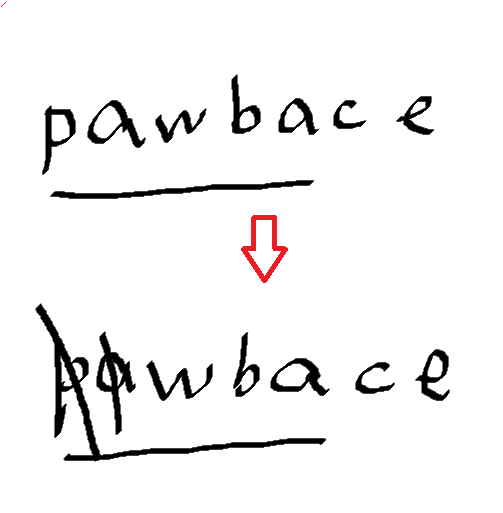 pawbace
pawbace